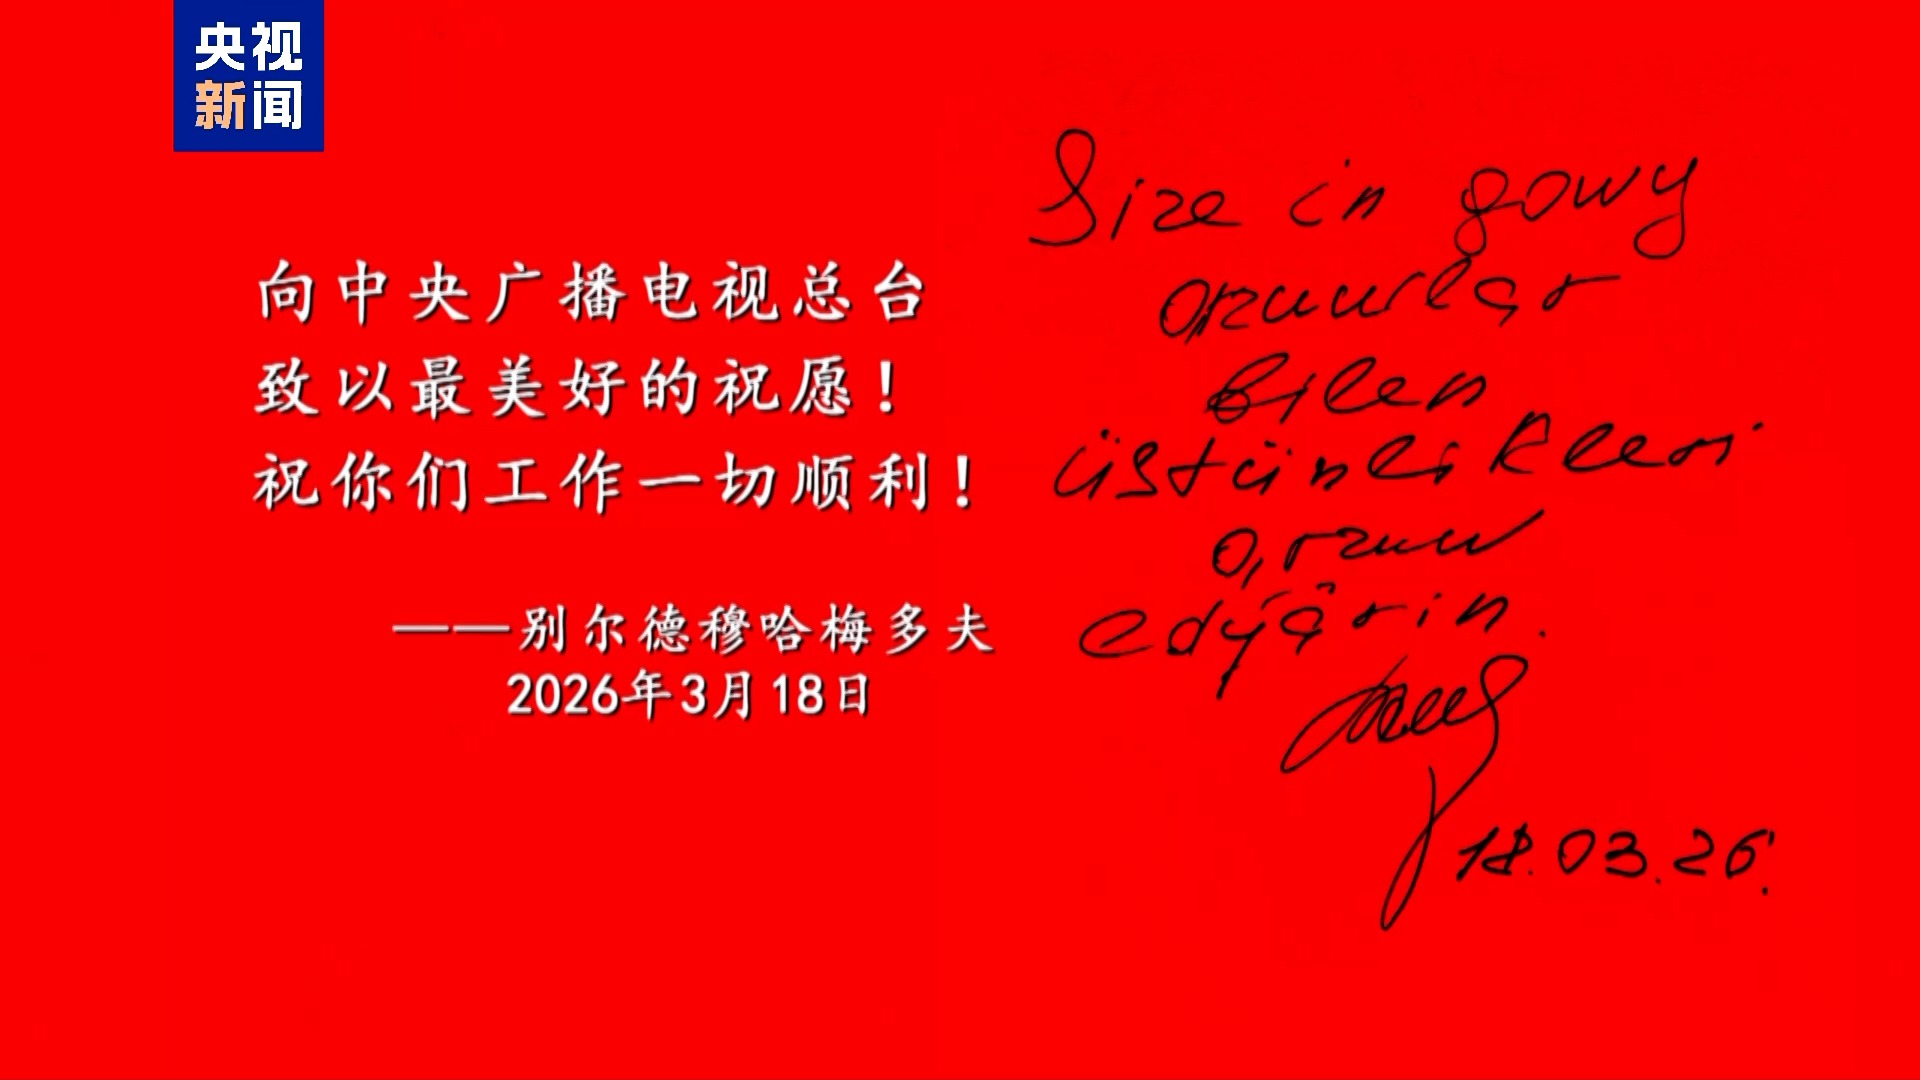 央视
新闻
向中央广播电视总台
致以最美好的祝愿！
祝你们工作一切顺利！
——别尔德穆哈梅多夫
2026年3月18日
Size iň gowy
arzuwlar
bilen
üstünlikleri
arzuw
edýärin.
18.03.26.